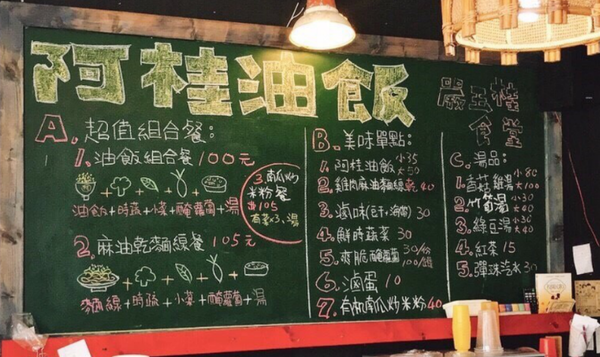 阿桂油飯
嚴玉桂
食堂
A. 超值組合餐:
1. 油飯組合餐 100元
油飯+時蔬+小菜+醃蘿蔔+湯
2. 麻油乾麵線餐 105元
麵線+時蔬+小菜+醃蘿蔔+湯
3. 南瓜炒
米粉餐
$105
有菜x3、湯
B. 美味單點:
1. 阿桂油飯 小35
大50
2. 雞肉麻油麵線 乾 40
3. 滷味(豆干+海帶) 30
4. 鮮時蔬菜 30
5. 爽脆醃蘿蔔 30/份
100/罐
6. 滷蛋 10
7. 有机南瓜炒米粉 40
C. 湯品:
1. 香菇雞湯 小80
大100
2. 竹筍湯 小30
大40
3. 綠豆湯 小30
大40
4. 紅茶 15
5. 彈珠汽水 30